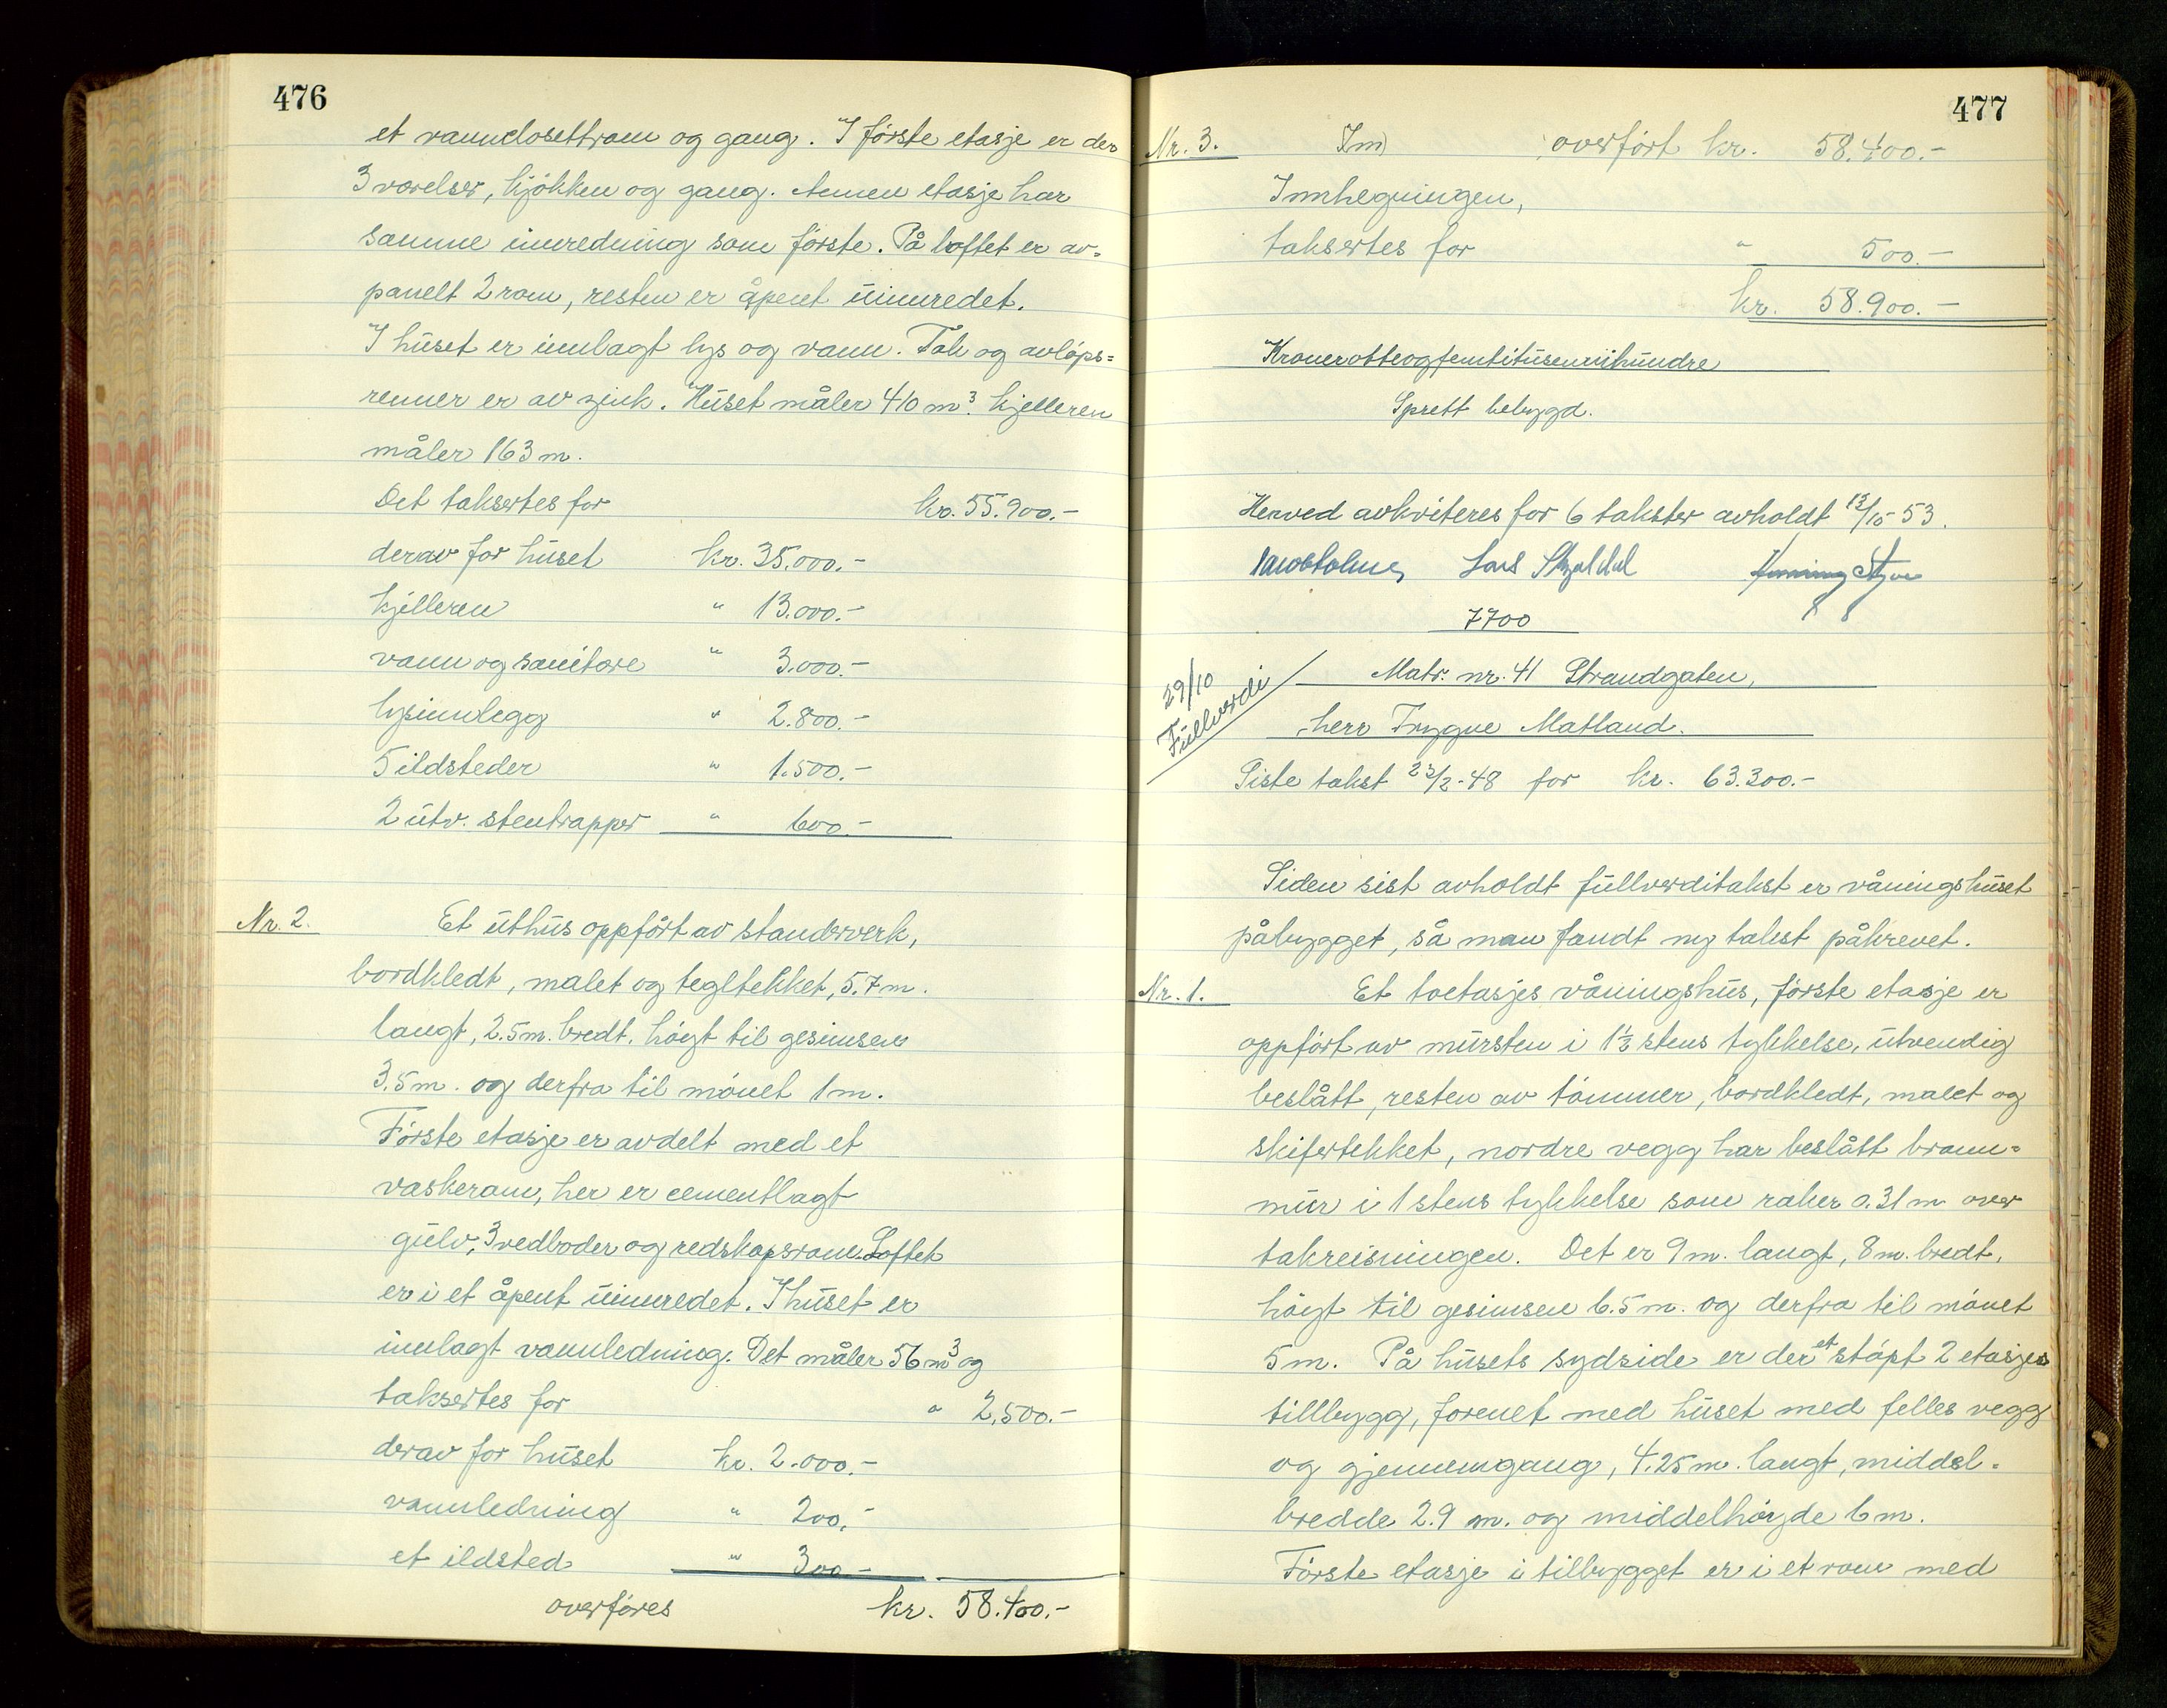 476
et vannclosettrom og gang. I første etasje er der
3 værelser, kjøkken og gang. Annen etasje har
samme innredning som første. På loftet er av-
panelt 2 rom, resten er åpent uinnredet.
I huset er innlagt lys og vann. Tak og avløps=
renner er av zink. Huset måler 410 m³. kjelleren
måler 163 m.
Det taksertes for kr. 55.900.-
derav for huset kr. 35.000.-
kjelleren " 13.000.-
vann og sanitære " 3.000.-
lysinnlegg " 2.800.-
5 ildsteder " 1.500.-
2 utv. stentrapper " 600.-
Nr. 2. Et uthus oppført av standerverk,
bordkledt, malet og tegltekket, 5.7 m.
langt, 2.5 m. bredt, høgt til gesimsen
3.5 m. og derfra til mønet 1 m.
Første etasje er avdelt med et
vaskerom, her er cementlagt
gulv, 3 vedboder og redskapsrom. Loftet
er i et åpent uinnredet. I huset er
innlagt vannledning. Det måler 56 m³ og
taksertes for " 2.500.-
derav for huset kr. 2.000.-
vannledning " 200.-
et ildsted " 300.-
overføres kr. 58.400.-
477
Nr. 3. overført kr. 58.400.-
Innhegningen,
taksertes for " 500.-
kr. 58.900.-
Kroner otteogfemtitusennihundre
Spredt bebygd.
Herved avkviteres for 6 takster avholdt 12/10-53.
Lars
7700
29/10
Fullverdi
Matr. nr. 41 Strandgaten,
herr Trygve Matland.
Siste takst 23/2-48 for kr. 63.300.-
Siden sist avholdt fullverditakst er våningshuset
påbygget, så man fandt ny takst påkrevet.
Nr. 1. Et toetasjes våningshus, første etasje er
oppført av mursten i 1½ stens tykkelse, utvendig
beslått, resten av tømmer, bordkledt, malet og
skifertekket, nordre vegg har beslått brann=
mur i 1 stens tykkelse som raker 0.31 m over
takreisningen. Det er 9 m. langt, 8 m. bredt,
høgt til gesimsen 6.5 m. og derfra til mønet
5 m. På husets sydside er der et støpt 2 etasjes
tillbygg, forenet med huset med felles vegg
og gjennemgang, 4.25 m. langt, middel-
bredde 2.9 m. og middelhøyde 6 m.
Første etasje i tilbygget er i et rom med